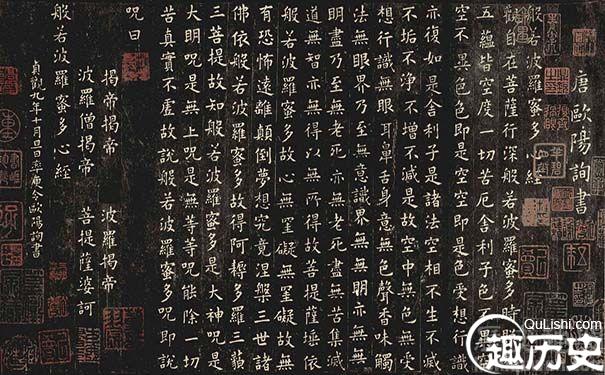 唐歐陽詢書
般若波羅蜜多心經
觀自在菩薩行深般若波羅蜜多時照
五蘊皆空度一切苦厄舍利子色不異
空不異色色即是空空即是色受想行識
亦復如是舍利子是諸法空相不生不滅
不垢不淨不增不減是故空中無色無受
想行識無眼耳鼻舌身意無色聲香味觸
法無眼界乃至無意識界無無明亦無無
明盡乃至無老死亦無老死盡無苦集滅
道無智亦無得以無所得故菩提薩埵依
般若波羅蜜多故心無罣礙無罣礙故無
有恐怖遠離顛倒夢想究竟涅槃三世諸
佛依般若波羅蜜多故得阿耨多羅三藐
三菩提故知般若波羅蜜多是大神呪是
大明呪是無上呪是無等等呪能除一切
苦真實不虛故說般若波羅蜜多呪即說
呪曰
揭帝揭帝 波羅揭帝
波羅僧揭帝 菩提薩婆訶
般若波羅蜜多心經
貞觀九年十月旦日率更令歐陽詢書
QuLiShi.com
趣历史